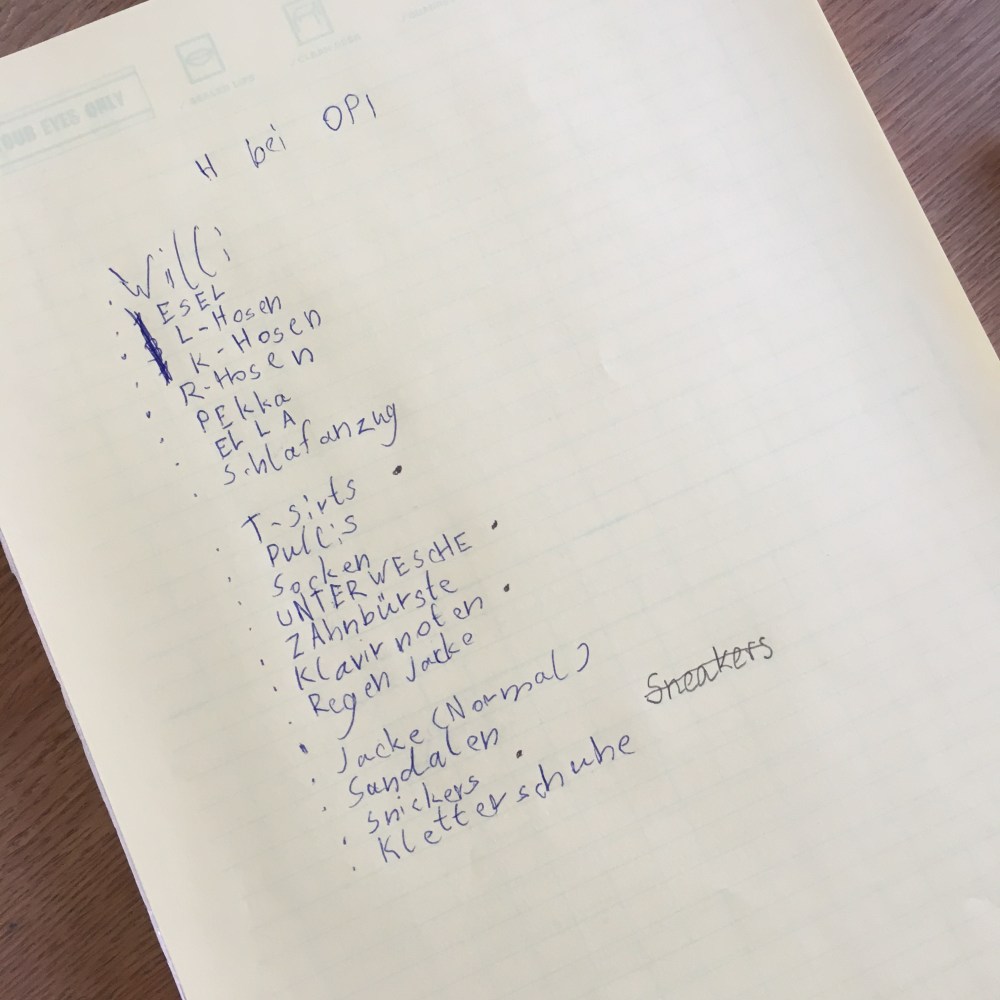 OUR EYES ONLY
H bei OPI
Willi
ESEL
L-Hosen
K-Hosen
R-Hosen
PEKKa
ELLA
Schlafanzug
T-Sirts
Pullis
Socken
UNTERWESCHE
ZAhnbürste
Klavir noten
Regen Jacke
Jacke (Normal)
Sandalen
Snickers
Sneakers
Kletterschuhe